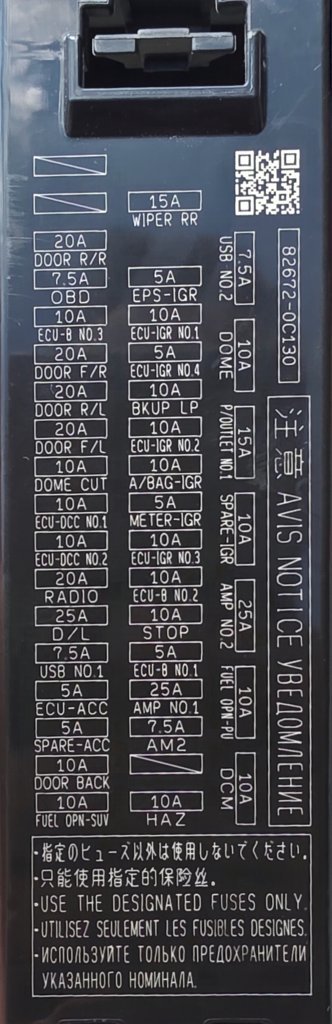 15A
WIPER RR
20A
DOOR R/R
7.5A
OBD
5A
EPS-IGR
10A
ECU-B NO.3
10A
ECU-IGR NO.1
20A
DOOR F/R
5A
ECU-IGR NO.4
20A
DOOR R/L
10A
BKUP LP
20A
DOOR F/L
10A
ECU-IGR NO.2
10A
DOME CUT
10A
A/BAG-IGR
10A
ECU-DCC NO.1
5A
METER-IGR
10A
ECU-DCC NO.2
10A
ECU-IGR NO.3
20A
RADIO
10A
ECU-B NO.2
25A
D/L
10A
STOP
7.5A
USB NO.1
5A
ECU-B NO.1
5A
ECU-ACC
25A
AMP NO.1
5A
SPARE-ACC
7.5A
AM2
10A
DOOR BACK
10A
FUEL OPN-SUV
10A
HAZ
7.5A
USB NO.2
10A
DOME
15A
P/OUTLET NO.1
10A
SPARE-IGR
25A
AMP NO.2
10A
FUEL OPN-PU
10A
DCM
82672-0C130
注意 AVIS NOTICE УВЕДОМЛЕНИЕ
・指定のヒューズ以外は使用しないでください。
・只能使用指定的保险丝。
・USE THE DESIGNATED FUSES ONLY.
・UTILISEZ SEULEMENT LES FUSIBLES DESIGNES.
・ИСПОЛЬЗУЙТЕ ТОЛЬКО ПРЕДОХРАНИТЕЛИ
УКАЗАННОГО НОМИНАЛА.